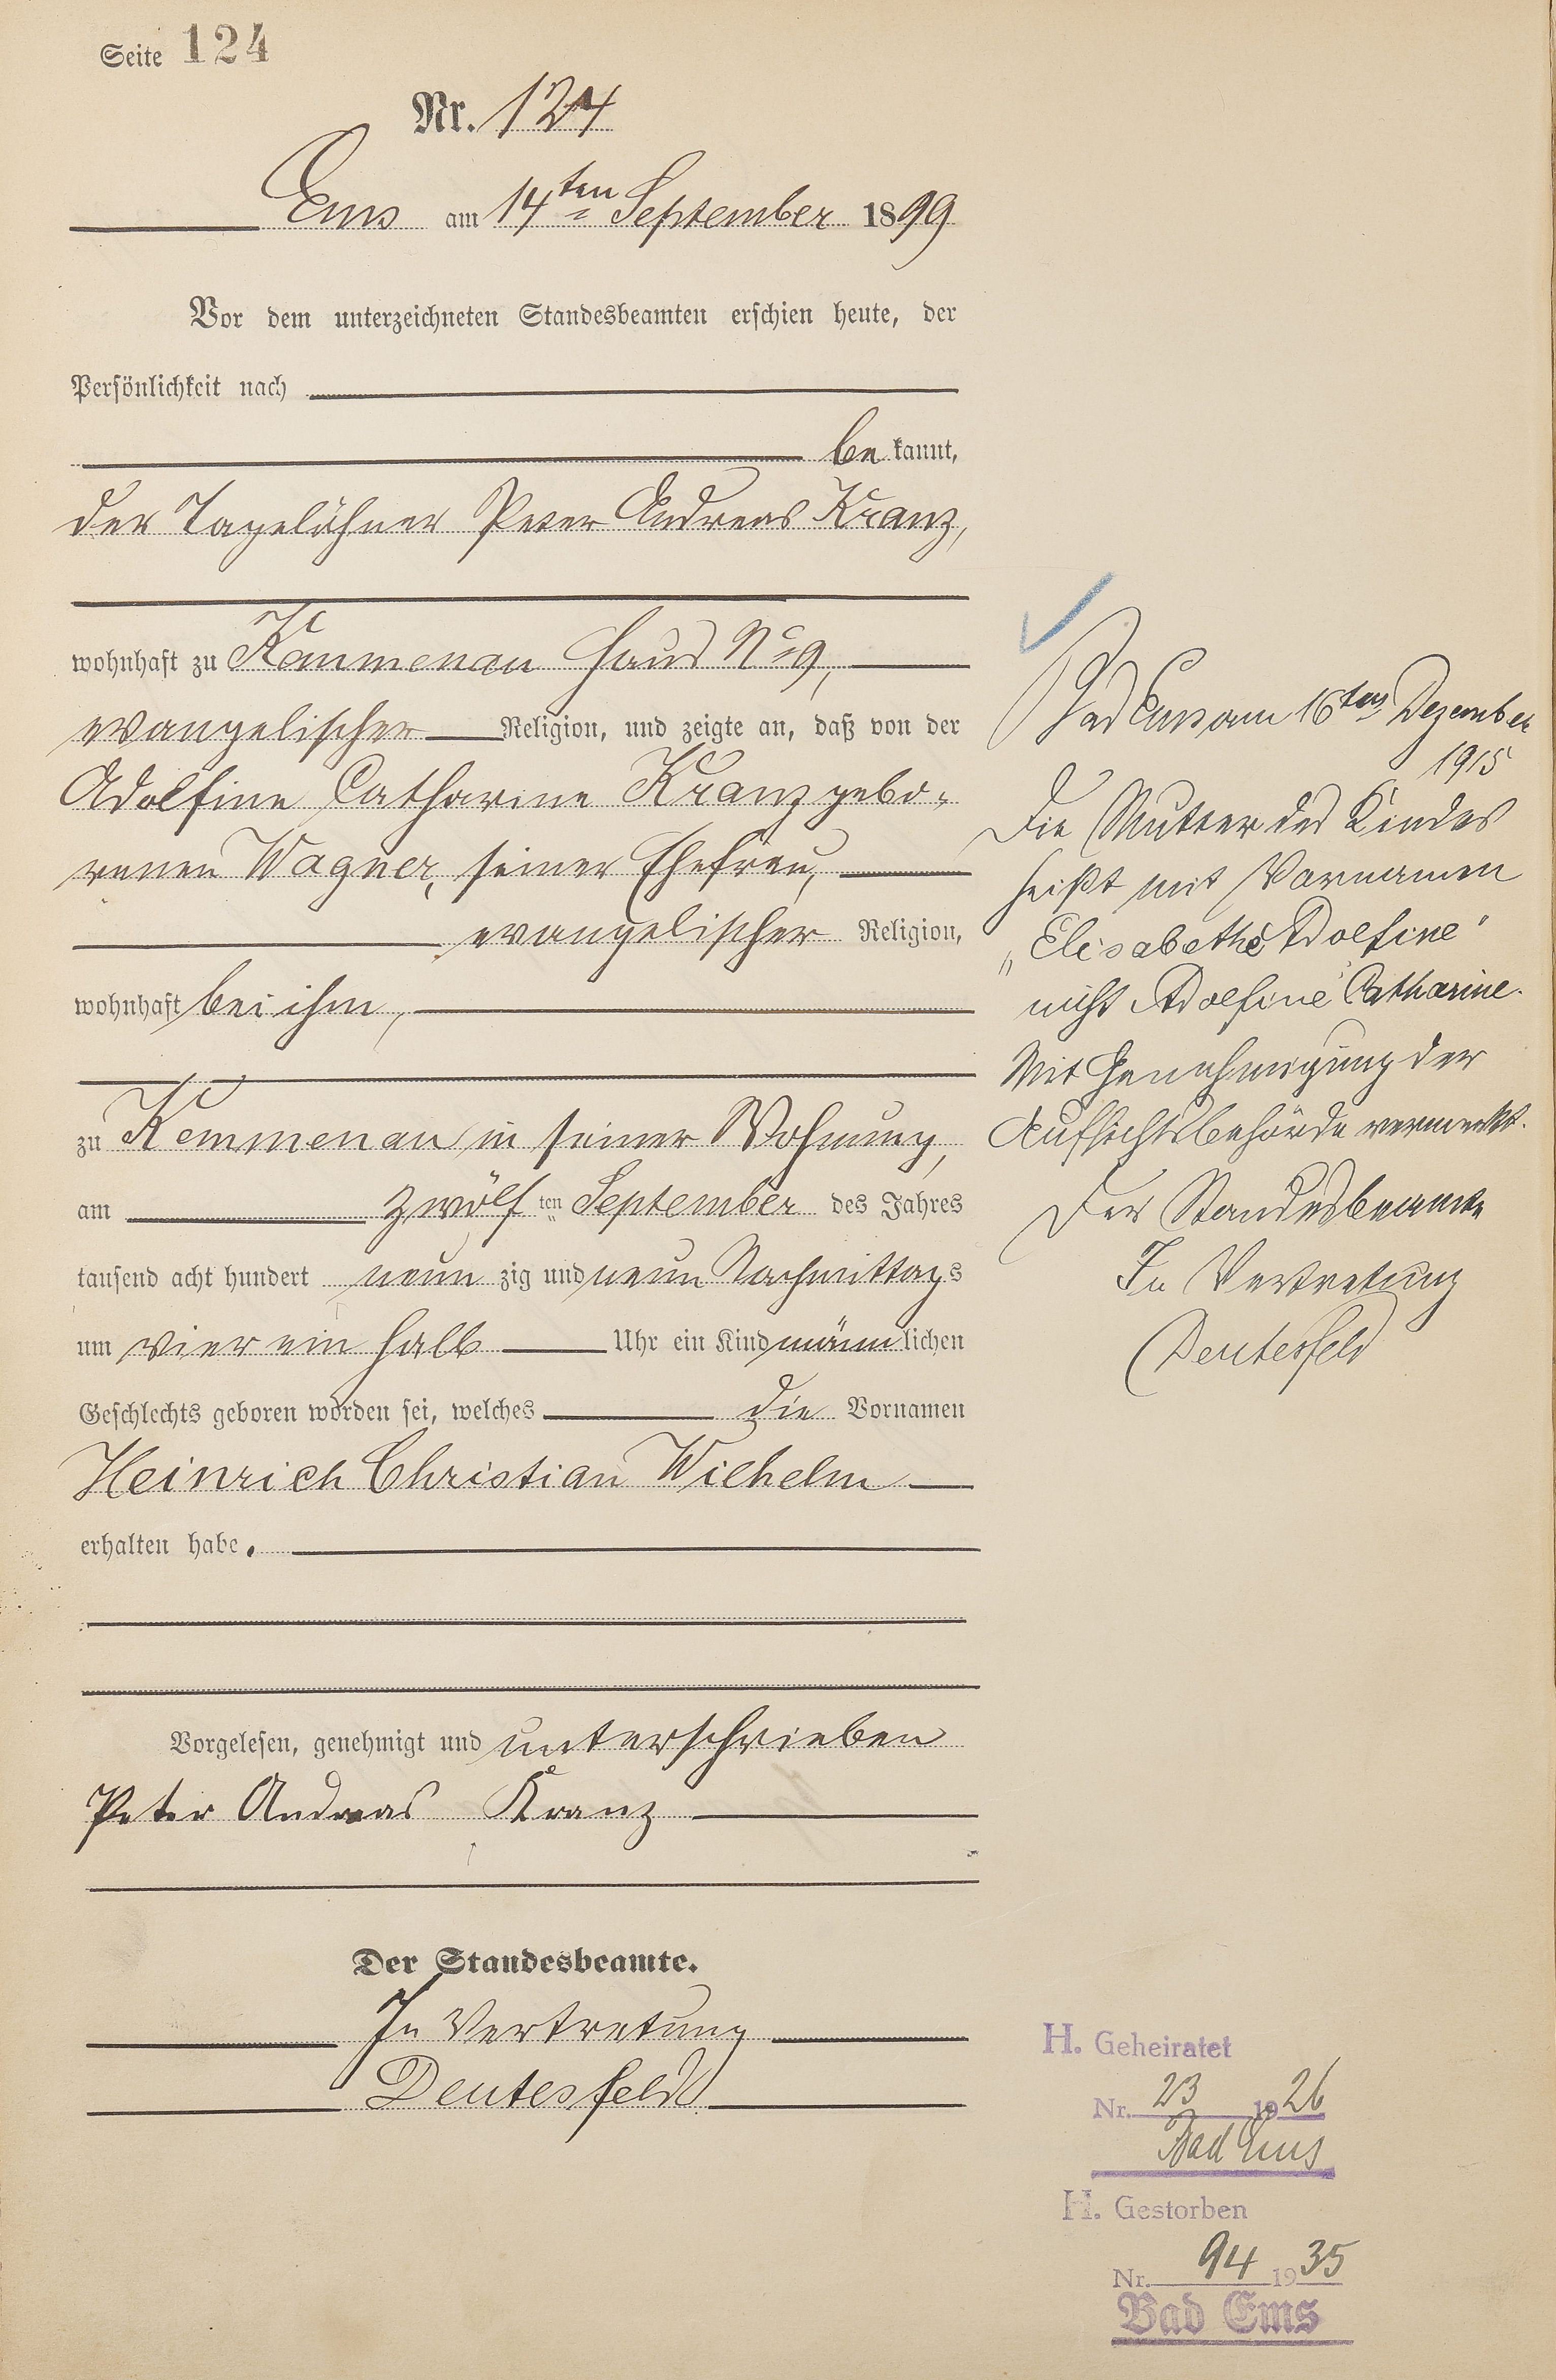 Seite 124
Nr. 124
Ems am 14ten September 1899
Vor dem unterzeichneten Standesbeamten erschien heute, der
Persönlichkeit nach
be kannt,
der Tagelöhner Peter Andreas Kranz,
wohnhaft zu Kemmenau Haus No 9,
evangelischer Religion, und zeigte an, daß von der
Adolfine Catharine Kranz gebo-
renen Wagner, seiner Ehefrau,
evangelischer Religion,
wohnhaft bei ihm,
zu Kemmenau in seiner Wohnung,
am zwölf ten September des Jahres
tausend acht hundert neun zig und neun Nachmittags
um vier ein halb Uhr ein Kind männlichen
Geschlechts geboren worden sei, welches die Vornamen
Heinrich Christian Wilhelm
erhalten habe.
Vorgelesen, genehmigt und unterschrieben
Peter Andreas Kranz
Der Standesbeamte.
In Vertretung
Deutesfeld
Bad Ems am 16ten Dezember
1915
Die Mutter des Kindes
heißt mit Vornamen
„Elisabethe Adolfine"
nicht Adolfine Catharine.
Mit Genehmigung der
Aufsichtsbehörde vermerkt.
Der Standesbeamte
In Vertretung
Deutesfeld
H. Geheiratet
Nr. 23 1926
Bad Ems
H. Gestorben
Nr. 94 1935
Bad Ems